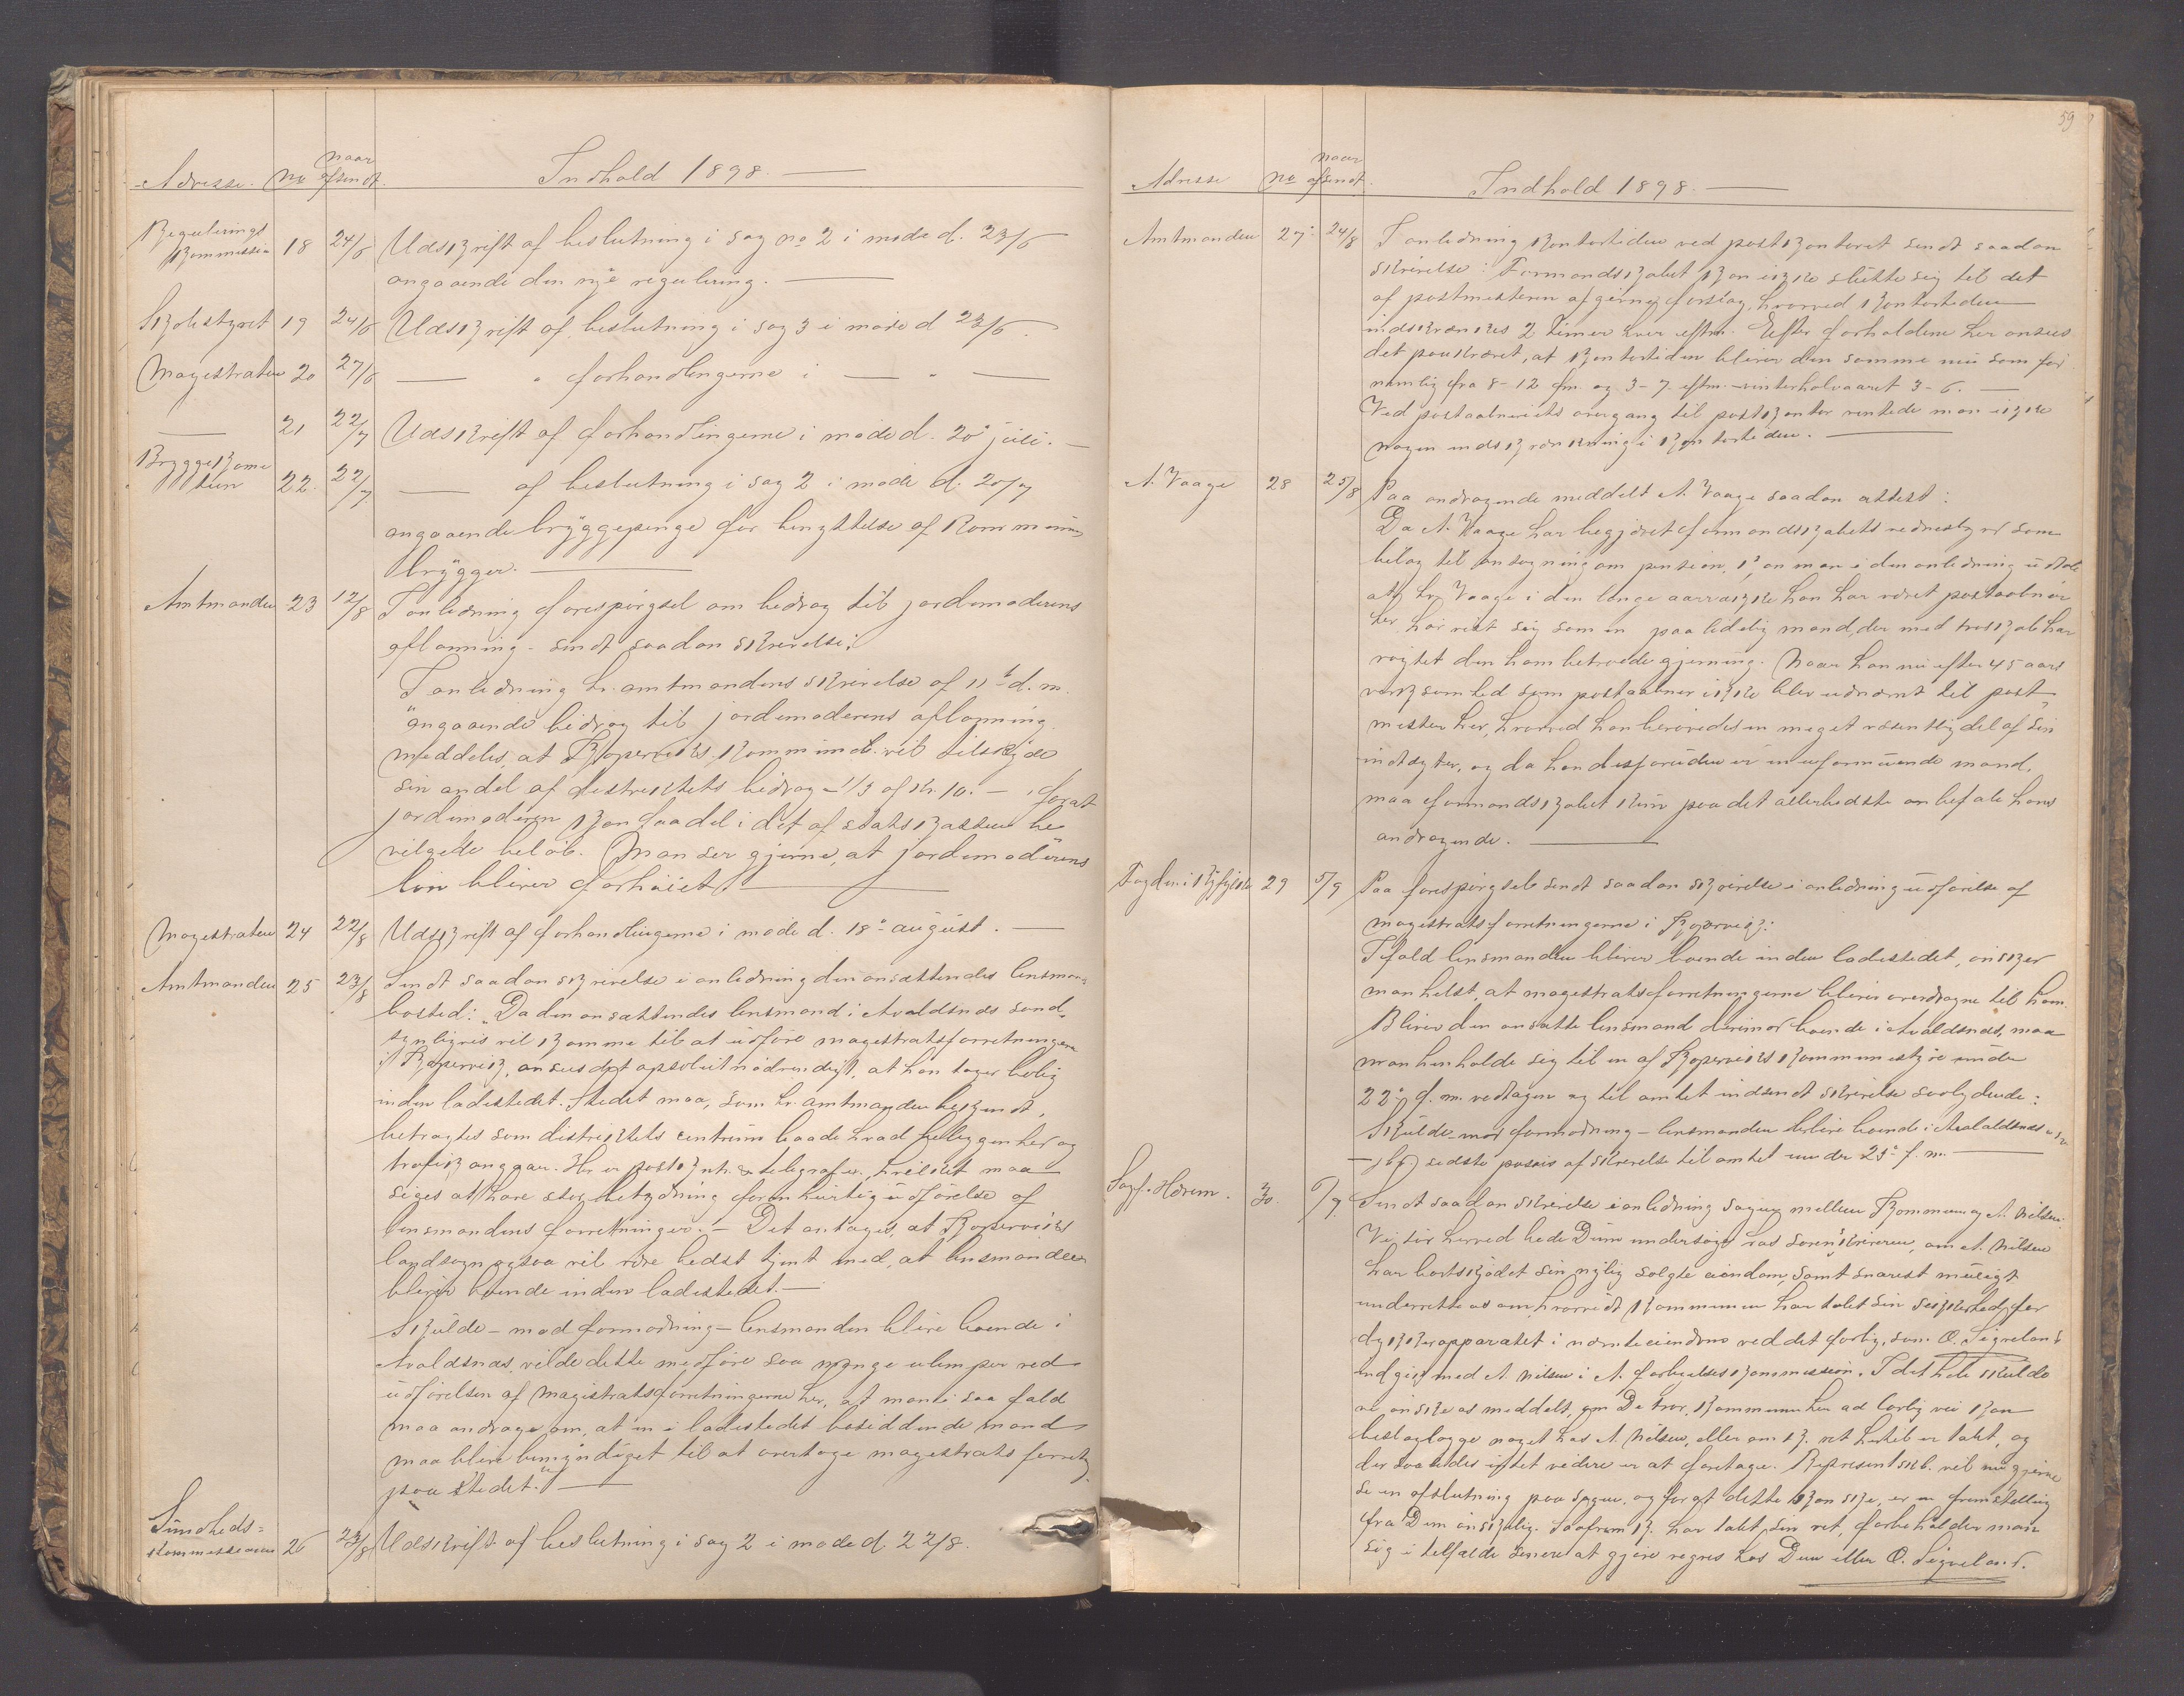 Adresse. No naar afsendt. Indhold 1898.
Regulerings kommission 18 24/6 Udskrift af beslutning i sag no 2 i møde d. 23/6
angaaende den nye regulering.
Skolestyret 19 24/6 Udskrift af beslutning i sag 3 i møde d 23/6.
Magistraten 20 27/6 — " forhandlingerne i — " —
— 21 22/7 Udskrift af forhandlingerne i møde d. 20de juli. —
Bryggekomiteen 22. 22/7 — af beslutning i sag 2 i møde d. 20/7
angaaende bryggepenge for benyttelse af Kommunens
brygger.
Amtmanden 23 12/8 I anledning forespørgsel om bedrag til jordemoderens
aflønning - sendt saadan skrivelse:
I anledning hr. amtmandens skrivelse af 11te d. m.
angaaende bidrag til jordemoderens aflønning
meddeles, at Kopervik kommune vil tilskyde
sin andel af distriktets bidrag - 1/3 af kr. 10. — , forat
jordemoderen kan faa del i det af statskassen be
vilgede beløb. Man ser gjerne, at jordemoderens
løn bliver forhøiet.
Magistraten 24 22/8 Udskrift af forhandlingerne i møde d. 18de august. —
Amtmanden 25 23/8 Sendt saadan skrivelse i anledning den ansættendes lensmans
bosted: "Da den ansættendes lensmand i Avaldsnes sand-
synligvis vil komme til at udføre magistratsforretningerne
i Kopervik, ansees det absolut nødvendigt, at han tager bolig
inden ladestedet. Stedet maa, som hr. amtmanden bekjendt,
betragtes som distriktets centrum baade hvad beliggenhed og
trafik angaar. Her er postkontr. & telegraf, hvilket maa
siges at have stor betydning for en hurtig udførelse af
lensmandens forretninger. — Det antages, at Koperviks
landsogn ogsaa vil være bedst tjent med, at lensmanden
bliver boende inden ladestedet. —
Skulde - mod formodning - lensmanden blive boende i
Avaldsnes, vilde dette medføre saa mange ulemper ved
udførelsen af magistratsforretningerne her, at man i saa fald
maa andrage om, at en i ladestedet bosiddende mand
maa blive bemyndiget til at overtage magistrats forretn.
paa stedet." —
Sundheds-kommissionen 26 23/8 Udskrift af beslutning i sag 2 i møde d 22/8.
59
Adresse No naar afsendt. Indhold 1898.
Amtmanden 27. 24/8 I anledning kontortiden ved postkontoret sendt saadan
skrivelse: Formandskabet kan ikke slutte sig til det
af postmesteren afgivne forslag, hvorved kontortiden
indskrænkes 2 timer hver eftm. Efter forholdene her ansees
det paakrævet, at kontortiden bliver den samme nu som før
nemlig fra 8-12 fm. og 3-7 eftm. - vinterhalvaaret 3-6. —
Ved postaabneriets overgang til postkontor ventede man ikke
nogen indskrænkning i kontortiden.
A. Vaage 28 25/8 Paa andragende meddelt A. Vaage saadan attest:
Da A. Vaage har begjæret formandskabets vidnesbyrd som
bilag til ansøgning om pension, kan man i den anledning udtale
at hr. Vaage i den lange aarrække han har været postaabner
her, har vist sig som en paalidelig mand, der med troskab har
røgtet den ham betroede gjerning. Naar han nu efter 45 aars
virksomhed som postaabner ikke blev udnævnt til post-
mester her, hvorved han berøvedes en meget væsentlig del af sin
indtægter, og da han desforuden er en uformuende mand,
maa formandskabet kun paa det allerbedste anbefale hans
andragende.
Fogden i Ryfylke 29 5/9 Paa forespørgsel sendt saadan skrivelse i anledning udførelse af
magistratsforretningerne i Kopervik:
Ifald lensmanden bliver boende inden ladestedet, ønsker
man helst, at magistratsforretningerne bliver overdragne til ham.
Bliver den ansatte lensmand derimod boende i Avaldsnes, maa
man henholde sig til en af Koperviks kommunestyre under
22de f. m. vedtagen og til amtet indsendt skrivelse saalydende:
Skulde - mod formodning - lensmanden blive boende i Avaldsnes o. s. v.
— jfr. sidste passus af skrivelse til amtet under 23de f. m. —
Sagf. Hdrem. 30. 6/9. Sendt saadan skrivelse i anledning sagen mellem Kommunen og A. Nilsen:
Vi tør herved bede Dem undersøge hos sorenskriveren, om A. Nilsen
har bortskjødet sin nylig solgte eiendom, samt snarest muligt
underrette os om, hvorvidt kommunen har tabt sin sikkerhed for
dykkerapparatet i nævnte eiendom ved det forlig, som O. Sigveland
indgik med A. Nilsen i A. forligelseskommission. I det hele skulde
vi ønske os meddelt, om De tror, kommunen her ad lovlig vei kan
beslaglægge noget hos A. Nilsen, eller om k. ret hertil er tabt, og
der saaledes intet videre er at foretage. Represent.skb. vil nu gjerne
se en afslutning paa sagen, og forat dette kan ske, er en fremstilling
fra Dem ønskelig. Saafremt k. har tabt sin ret, forbeholder man
sig i tilfælde senere at gjøre regres hos Dem eller O. Sigveland.